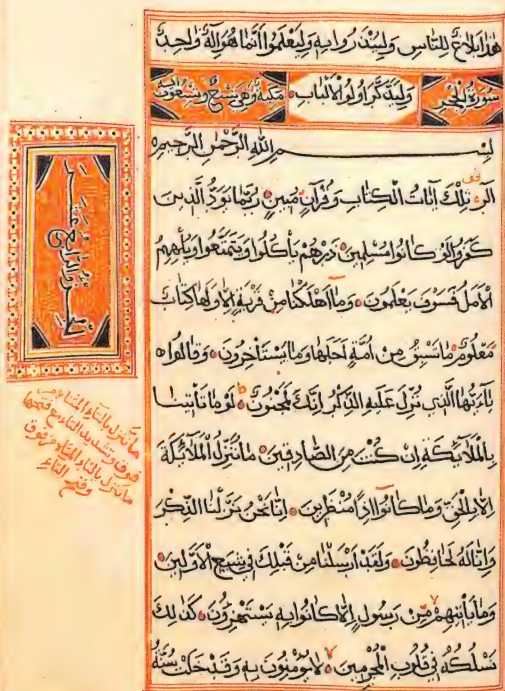 هذا بلاغ للناس ولينذروا به وليعلموا أنما هو إله واحد
سورة الحجر
وليذكر أولوا الألباب
مكية وهي تسع وتسعون آية
بسم الله الرحمن الرحيم
الر تلك آيات الكتاب وقرآن مبين ربما يود الذين
كفروا لو كانوا مسلمين ذرهم يأكلوا ويتمتعوا ويلههم
الأمل فسوف يعلمون وما أهلكنا من قرية إلا ولها كتاب
معلوم ما تسبق من أمة أجلها وما يستأخرون وقالوا
يا أيها الذي نزل عليه الذكر إنك لمجنون لو ما تأتينا
بالملائكة إن كنت من الصادقين ما ننزل الملائكة
إلا بالحق وما كانوا إذا منظرين إنا نحن نزلنا الذكر
وإنا له لحافظون ولقد أرسلنا من قبلك في شيع الأولين
وما يأتيهم من رسول إلا كانوا به يستهزؤن كذلك
نسلكه في قلوب المجرمين لا يؤمنون به وقد خلت سنة
الجزو الرابع عشر
ما تنزل بالتاء المثناة من
فوق وتشديد التاء مع فتحها
ما تنزل بالتاء المثناة من فوق
وفتح التاء